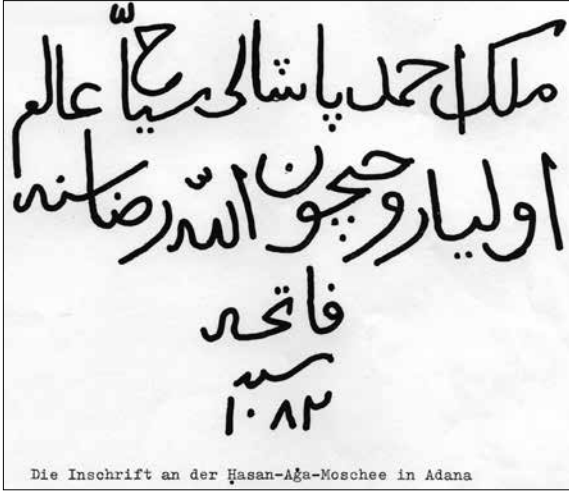 ملك احمد پاشالی سیّاح عالم
اولیا روحیچون اللّه رضاسنه
فاتحه
سنه
١٠٨٢
Die Inschrift an der Ḥasan-Ağa-Moschee in Adana